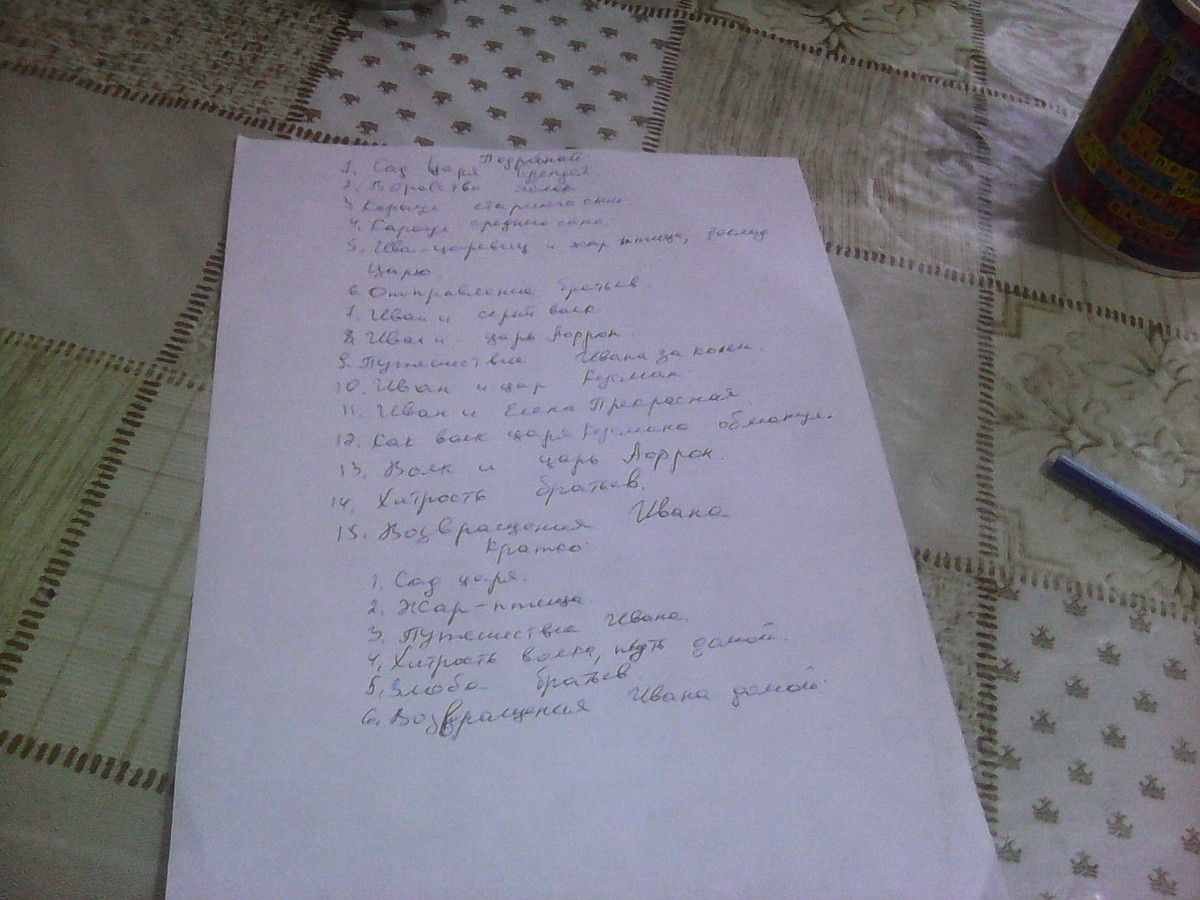 Подробный
1. Сад Царя Берендея
2. Воровство яблок
3 Караул старшего сына.
4. Караул среднего сына
5. Иван-царевич и жар птица, доклад
царю.
6. Отправление братьев.
7. Иван и серый волк.
8. Иван и царь Афрон
9. Путешествие Ивана за конем.
10. Иван и цар Кусман.
11. Иван и Елена Прекрасная
12. Как волк царя Кусмана
13. Волк и царь Афрон.
14. Хитрость братьев.
15. Возвращения Ивана
Кратко:
1. Сад царя.
2. Жар-птица.
3. Путешествие Ивана.
4. Хитрость волка, путь домой.
5. Злоба братьев.
6. Возвращения Ивана домой.